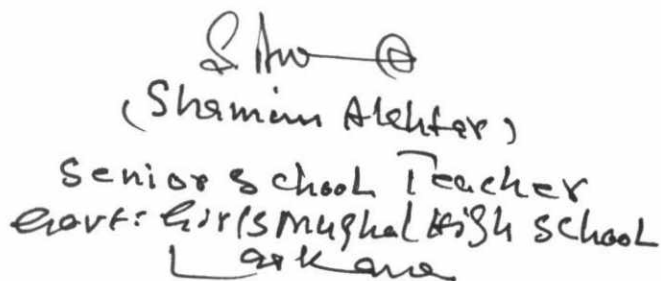 (Shamim Akhtar)
Senior School Teacher
Govt: Girls Mughal High School
Larkana